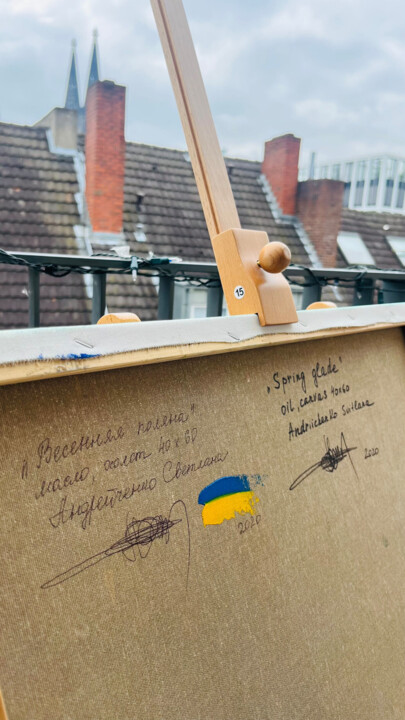 15
"Весенняя поляна"
масло, холст 40х60
Андрейченко Светлана
2020
„Spring glade"
oil, canvas 40x60
Andriichenko Svitlana
2020